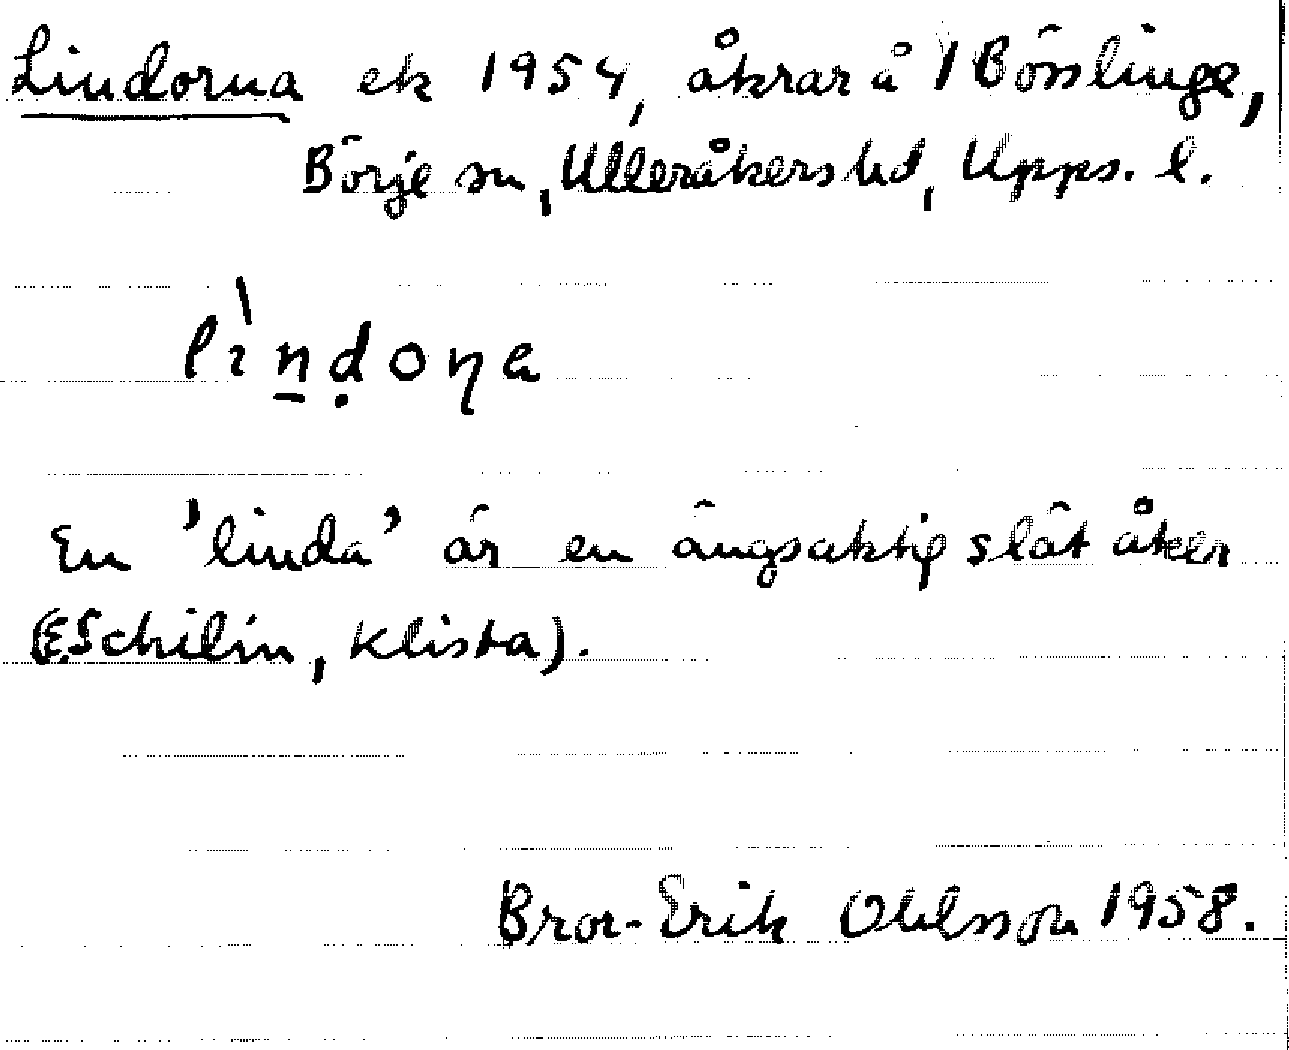 Lindorna ek 1954, åkrar å 1 Bösslinge,
Börje sn, Ulleråkers hd, Upps. l.
lìn̠ḍoṇa
En 'linda' är en ängsaktig slät åker
(E. Schilin, Klista).
Bror-Erik Ohlsson 1958.